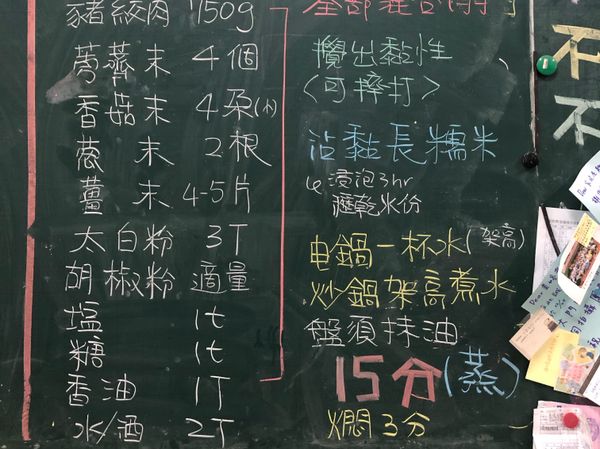 豬絞肉 750g
荸薺末 4個
香菇末 4朵(小)
蔥末 2根
薑末 4-5片
太白粉 3T
胡椒粉 適量
塩 1t
糖 1t
香油 1T
水/酒 2T
攪出黏性
(可摔打)
沾黏長糯米
浸泡3hr
瀝乾水份
电鍋一杯水(架高)
炒鍋架高煮水
盤須抹油
15分(蒸)
燜3分
不
不